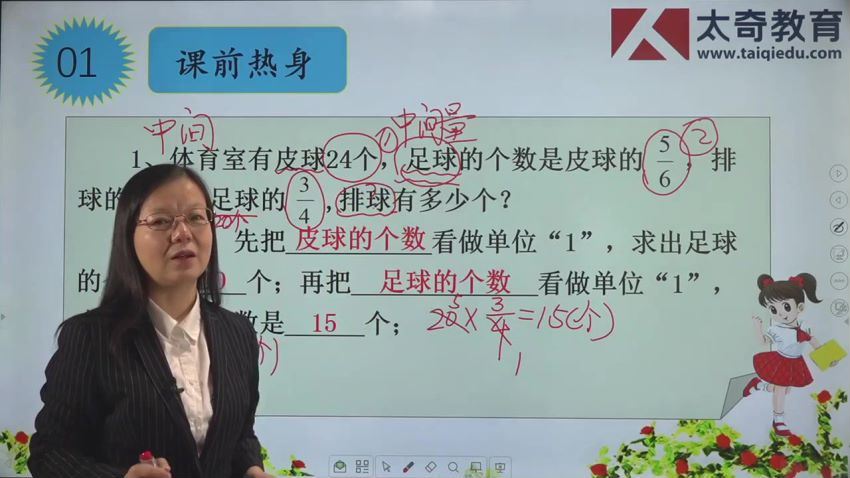 01
课前热身
太奇教育
www.taiqiedu.com
中间
中间量
1、体育室有皮球24个，足球的个数是皮球的5/6，排
球的 足球的3/4,排球有多少个？
① ②
20个
先把皮球的个数看做单位“1”，求出足球
的 个；再把足球的个数看做单位“1”，
数是15个；
20×3/4=15(个)
5
1
个)